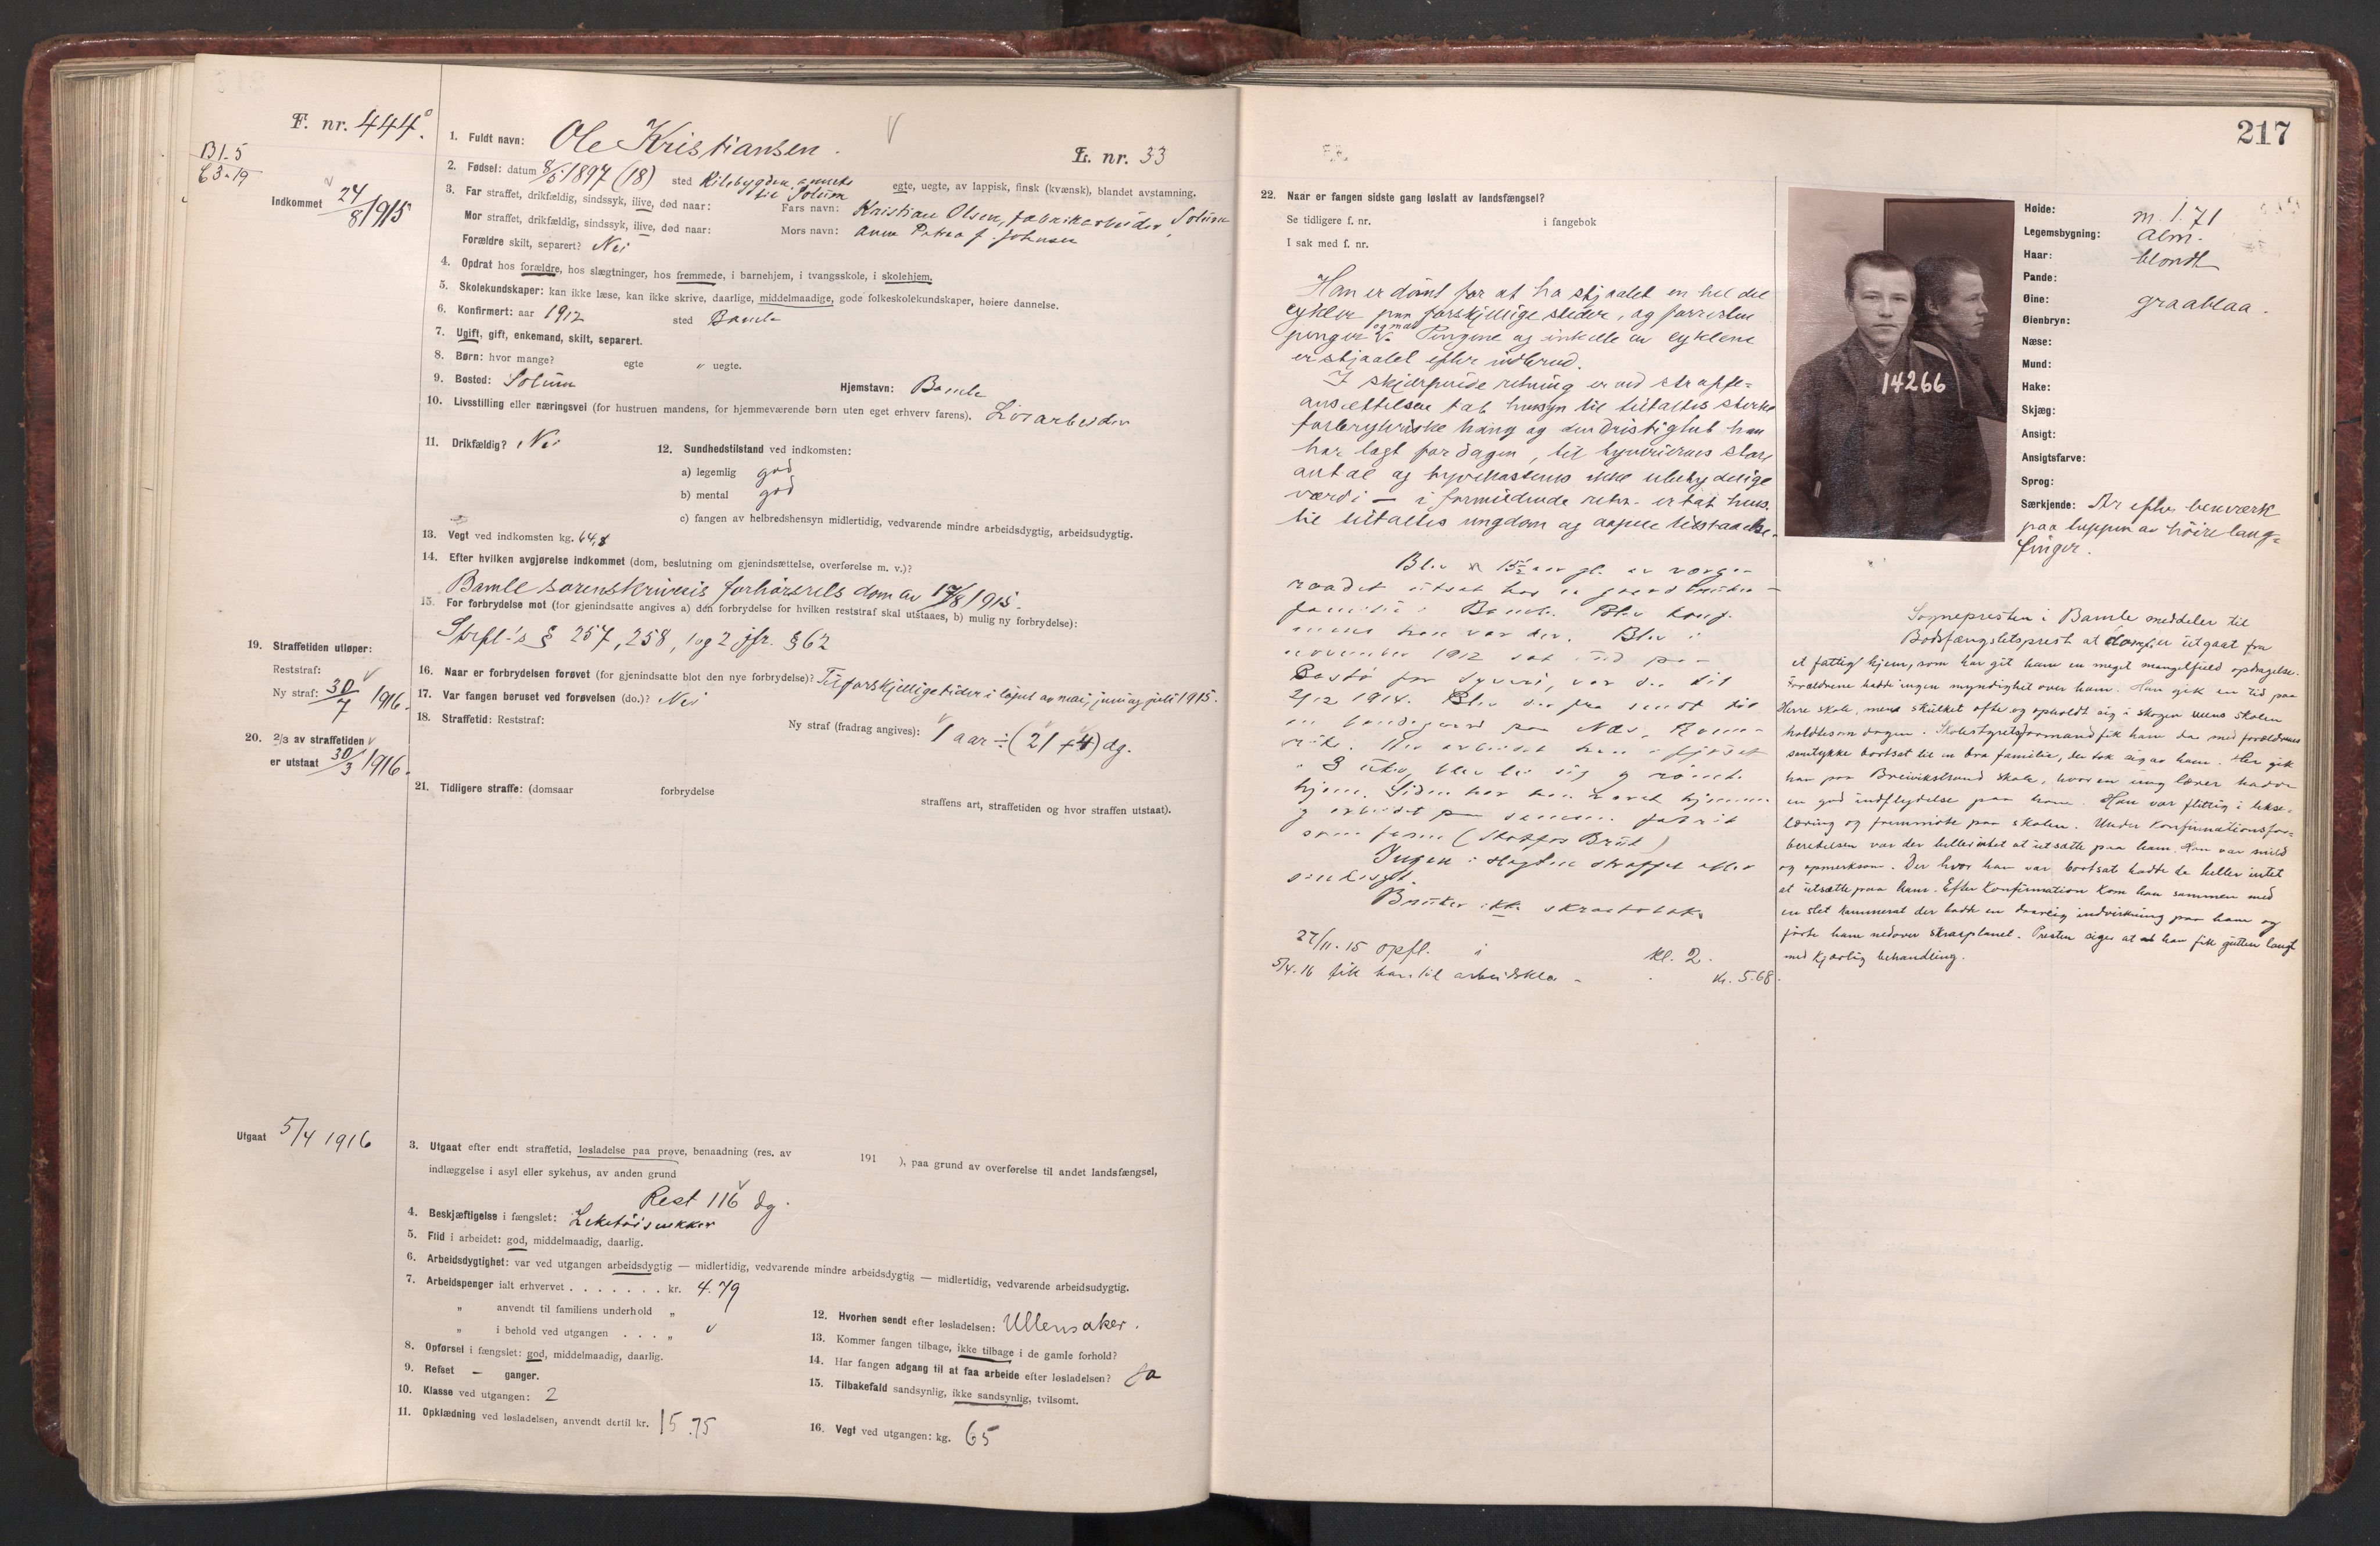 F. nr. 444.
B1-5
C3-19
Indkommet 24/8 1915
1. Fuldt navn: Ole Kristiansen.
L. nr. 33
2. Fødsel: datum 8/5 1897 (18) sted Kilebygden, annekx til Solum egte, uegte, av lappisk, finsk (kvænsk), blandet avstamning.
3. Far straffet, drikfældig, sindssyk, ilive, død naar: Fars navn: Kristian Olsen, fabrikarbeider, Solum
Mor straffet, drikfældig, sindssyk, ilive, død naar: Mors navn: Anne Petrea f. Johnsen
Forældre skilt, separert? Nei
4. Opdrat hos forældre, hos slægtninger, hos fremmede, i barnehjem, i tvangsskole, i skolehjem.
5. Skolekundskaper: kan ikke læse, kan ikke skrive, daarlige, middelmaadige, gode folkeskolekundskaper, høiere dannelse.
6. Konfirmert: aar 1912 sted Bamle
7. Ugift, gift, enkemand, skilt, separert.
8. Børn: hvor mange? egte " uegte.
9. Bosted: Solum Hjemstavn: Bamle
10. Livsstilling eller næringsvei (for hustruen mandens, for hjemmeværende børn uten eget erhverv farens). Løsarbeider
11. Drikfældig? Nei
12. Sundhedstilstand ved indkomsten:
a) legemlig god
b) mental god
c) fangen av helbredshensyn midlertidig, vedvarende mindre arbeidsdygtig, arbeidsudygtig.
13. Vegt ved indkomsten kg. 64,8
14. Efter hvilken avgjørelse indkommet (dom, beslutning om gjenindsættelse, overførelse m. v.)?
Bamle sorenskriveris forhørsrets dom av 17/8 1915.
15. For forbrydelse mot (for gjenindsatte angives a) den forbrydelse for hvilken reststraf skal utstaaes, b) mulig ny forbrydelse):
Strfl.'s § 257, 258, 1 og 2 jfr. § 62
16. Naar er forbrydelsen forøvet (for gjenindsatte blot den nye forbrydelse)? Til forskjellige tider i løpet av mai, juni og juli 1915.
17. Var fangen beruset ved forøvelsen (do.)? Nei
18. Straffetid: Reststraf: Ny straf (fradrag angives): 1 aar ÷ (21 + 4) dg.
19. Straffetiden utløper:
Reststraf:
Ny straf: 30/7 1916.
20. 2/3 av straffetiden
er utstaat 30/3 1916.
21. Tidligere straffe: (domsaar forbrydelse straffens art, straffetiden og hvor straffen utstaat).
Utgaat 5/4 1916
3. Utgaat efter endt straffetid, løsladelse paa prøve, benaadning (res. av 191 ), paa grund av overførelse til andet landsfængsel,
indlæggelse i asyl eller sykehus, av anden grund
Rest 116 dg.
4. Beskjæftigelse i fængslet: Leketøisnekker
5. Flid i arbeidet: god, middelmaadig, daarlig.
6. Arbeidsdygtighet: var ved utgangen arbeidsdygtig — midlertidig, vedvarende mindre arbeidsdygtig — midlertidig, vedvarende arbeidsudygtig.
7. Arbeidspenger ialt erhvervet . . . . . . . kr. 4.79
" anvendt til familiens underhold "
" i behold ved utgangen . . . "
8. Opførsel i fængslet: god, middelmaadig, daarlig.
9. Refset – ganger.
10. Klasse ved utgangen: 2
11. Opklædning ved løsladelsen, anvendt dertil kr. 15.75
12. Hvorhen sendt efter løsladelsen: Ullensaker.
13. Kommer fangen tilbage, ikke tilbage i de gamle forhold?
14. Har fangen adgang til at faa arbeide efter løsladelsen? Ja
15. Tilbakefald sandsynlig, ikke sandsynlig, tvilsomt.
16. Vegt ved utgangen: kg. 65
217
22. Naar er fangen sidste gang løslatt av landsfængsel?
Se tidligere f. nr. i fangebok
I sak med f. nr.
Han er dømt for at ha stjaalet en hel del
cykler paa forskjellige steder, og forresten
penger og mat. Pengene og enkelte av cyklene
er stjaalet efter indbrud.
I skjærpende retning er ved straffe-
ansættelsen tat hensyn til tiltaltes sterke
forbryderske hang og den dristighet han
har lagt for dagen, til tyveriernes store
antal og tyvekosternes ikke ubetydelige
værdi — i formildende retn. er tat hens.
til tiltaltes ungdom og aapne tilstaaelse.
Blev 15½ aar gl. av værge-
raadet utsat hos en gaardbruker-
familie i Bamle. Blev konf.
mens han var der. Blev i
november 1912 sat ind paa
Bastø for tyveri, var der til
2/12 1914. Blev derfra sendt til
en bondegaard paa Nes, Rome-
rike. Her arbeidet han i fjøset
i 3 uker, blev lei sig og rømte
hjem. Siden har han været hjemme
og arbeidet paa samme fabrik
som faren (Skotfos Bruk)
Ingen i slegten straffet eller
sindssyk.
Bruker ikke skraatobak.
27/11-15 opfl. i kl. 2.
5/4-16 fik han til arbeidsklær - kr. 5.68.
14266
Høide: m. 1.71
Legemsbygning: alm.
Haar: blondt
Pande:
Øine: graablaa.
Øienbryn:
Næse:
Mund:
Hake:
Skjæg:
Ansigt:
Ansigtsfarve:
Sprog:
Særkjende: Ar efter benværk
paa tuppen av høire lang-
finger.
Sognepresten i Bamle meddeler til
Bodsfængslets prest at domf. er utgaat fra
et fattig hjem, som har git ham en meget mangelfuld opdragelse.
Forældrene hadde ingen myndighet over ham. Han gik en tid paa
Herre skole, mens skulket ofte og opholdt sig i skogen mens skolen
holdtes om dagen. Skolestyrets formand fik ham da med forældrenes
samtykke bortsat til en bra familie, der tok sig av ham. Her gik
han paa Breivikstrand skole, hvor en ung lærer hadde
en god indflydelse paa ham. Han var flittig i lekse-
læring og fremmøte paa skolen. Under konfirmationsfor-
beredelsen var der heller intet at utsætte paa ham. Han var snild
og opmerksom. Der hvor han var bortsat hadde de heller intet
at utsætte paa ham. Efter konfirmation kom han sammen med
en slet kammerat der hadde en daarlig indvirkning paa ham og
førte ham nedover skraaplanet. Presten siger at han fik gutten langt
med kjærlig behandling.